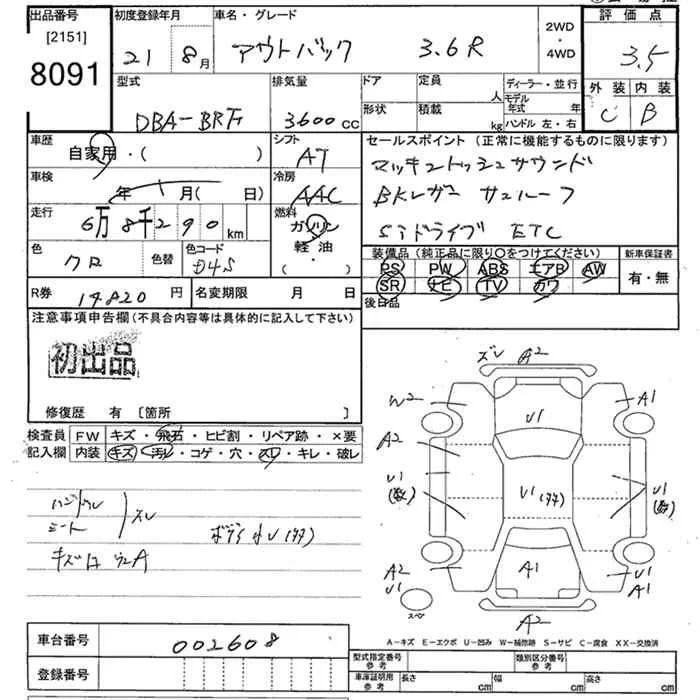 出品番号
[2151]
8091
初度登録年月
21 8月
車名・グレード
アウトバック 3.6R
2WD
・
4WD
評価点
3.5
型式
DBA-BRF
排気量
3600cc
ドア
定員
人
形状
積載
kg
ディーラー・並行
モデル
年式 年
ハンドル 左・右
外装
C
内装
B
車歴
自家用・( )
シフト
AT
車検
年 月( 日)
冷房
AAC
走行
6万8千290km
燃料
ガソリン
軽油・
( )
色
クロ
色替
色コード
D4S
R券 14820円
名変期限 月 日
セールスポイント(正常に機能するものに限ります)
マッキントッシュサウンド
BKレザー サンルーフ
SIドライブ ETC
装備品(純正品に限り○をつけてください)
PS PW ABS エアB AW
SR ナビ TV カワ
新車保証書
有・無
後日品
注意事項申告欄(不具合内容等は具体的に記入して下さい)
初出品
修復歴 有 〔箇所 〕
検査員
記入欄
FW キズ・飛石・ヒビ割・リペア跡・×要
内装 キズ・汚レ・コゲ・穴・スレ・キレ・破レ
ハンドル
シート
スレ
ボディ小U(多)
ズレ A2
W2
A1
U1
A2
U1
(数)
U1(多)
U1
(数)
A2
U1
A1
U1
A1
スペア
A2
A-キズ E-エクボ U-凹み W-補修跡 S-サビ C-腐食 XX-交換済
車台番号 002608
登録番号
型式指定番号
参考
類別区分番号
参考
車庫証明用
参考
長さ cm
幅 cm
高さ cm